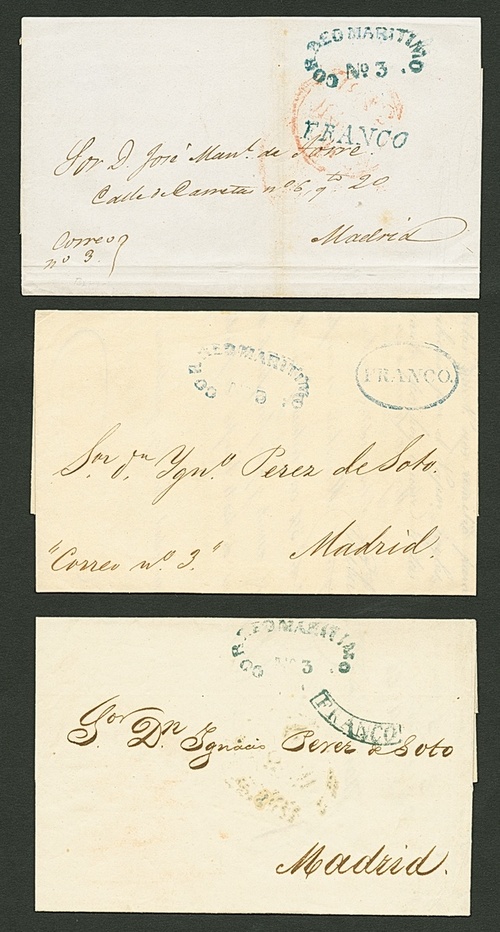 CORREO MARITIMO
Nº 3 .
FRANCO
Sor D. José Manl. de
Calle de Carretas nº 6, 20
Madrid
Correo
nº 3.
CORREO MARITIMO
FRANCO.
Sor. dn Ygnº Perez de Soto.
Madrid.
"Correo nº 3."
CORREO MARITIMO
Nº 3 .
FRANCO.
Sor Dn Ignacio Perez de Soto
Madrid.